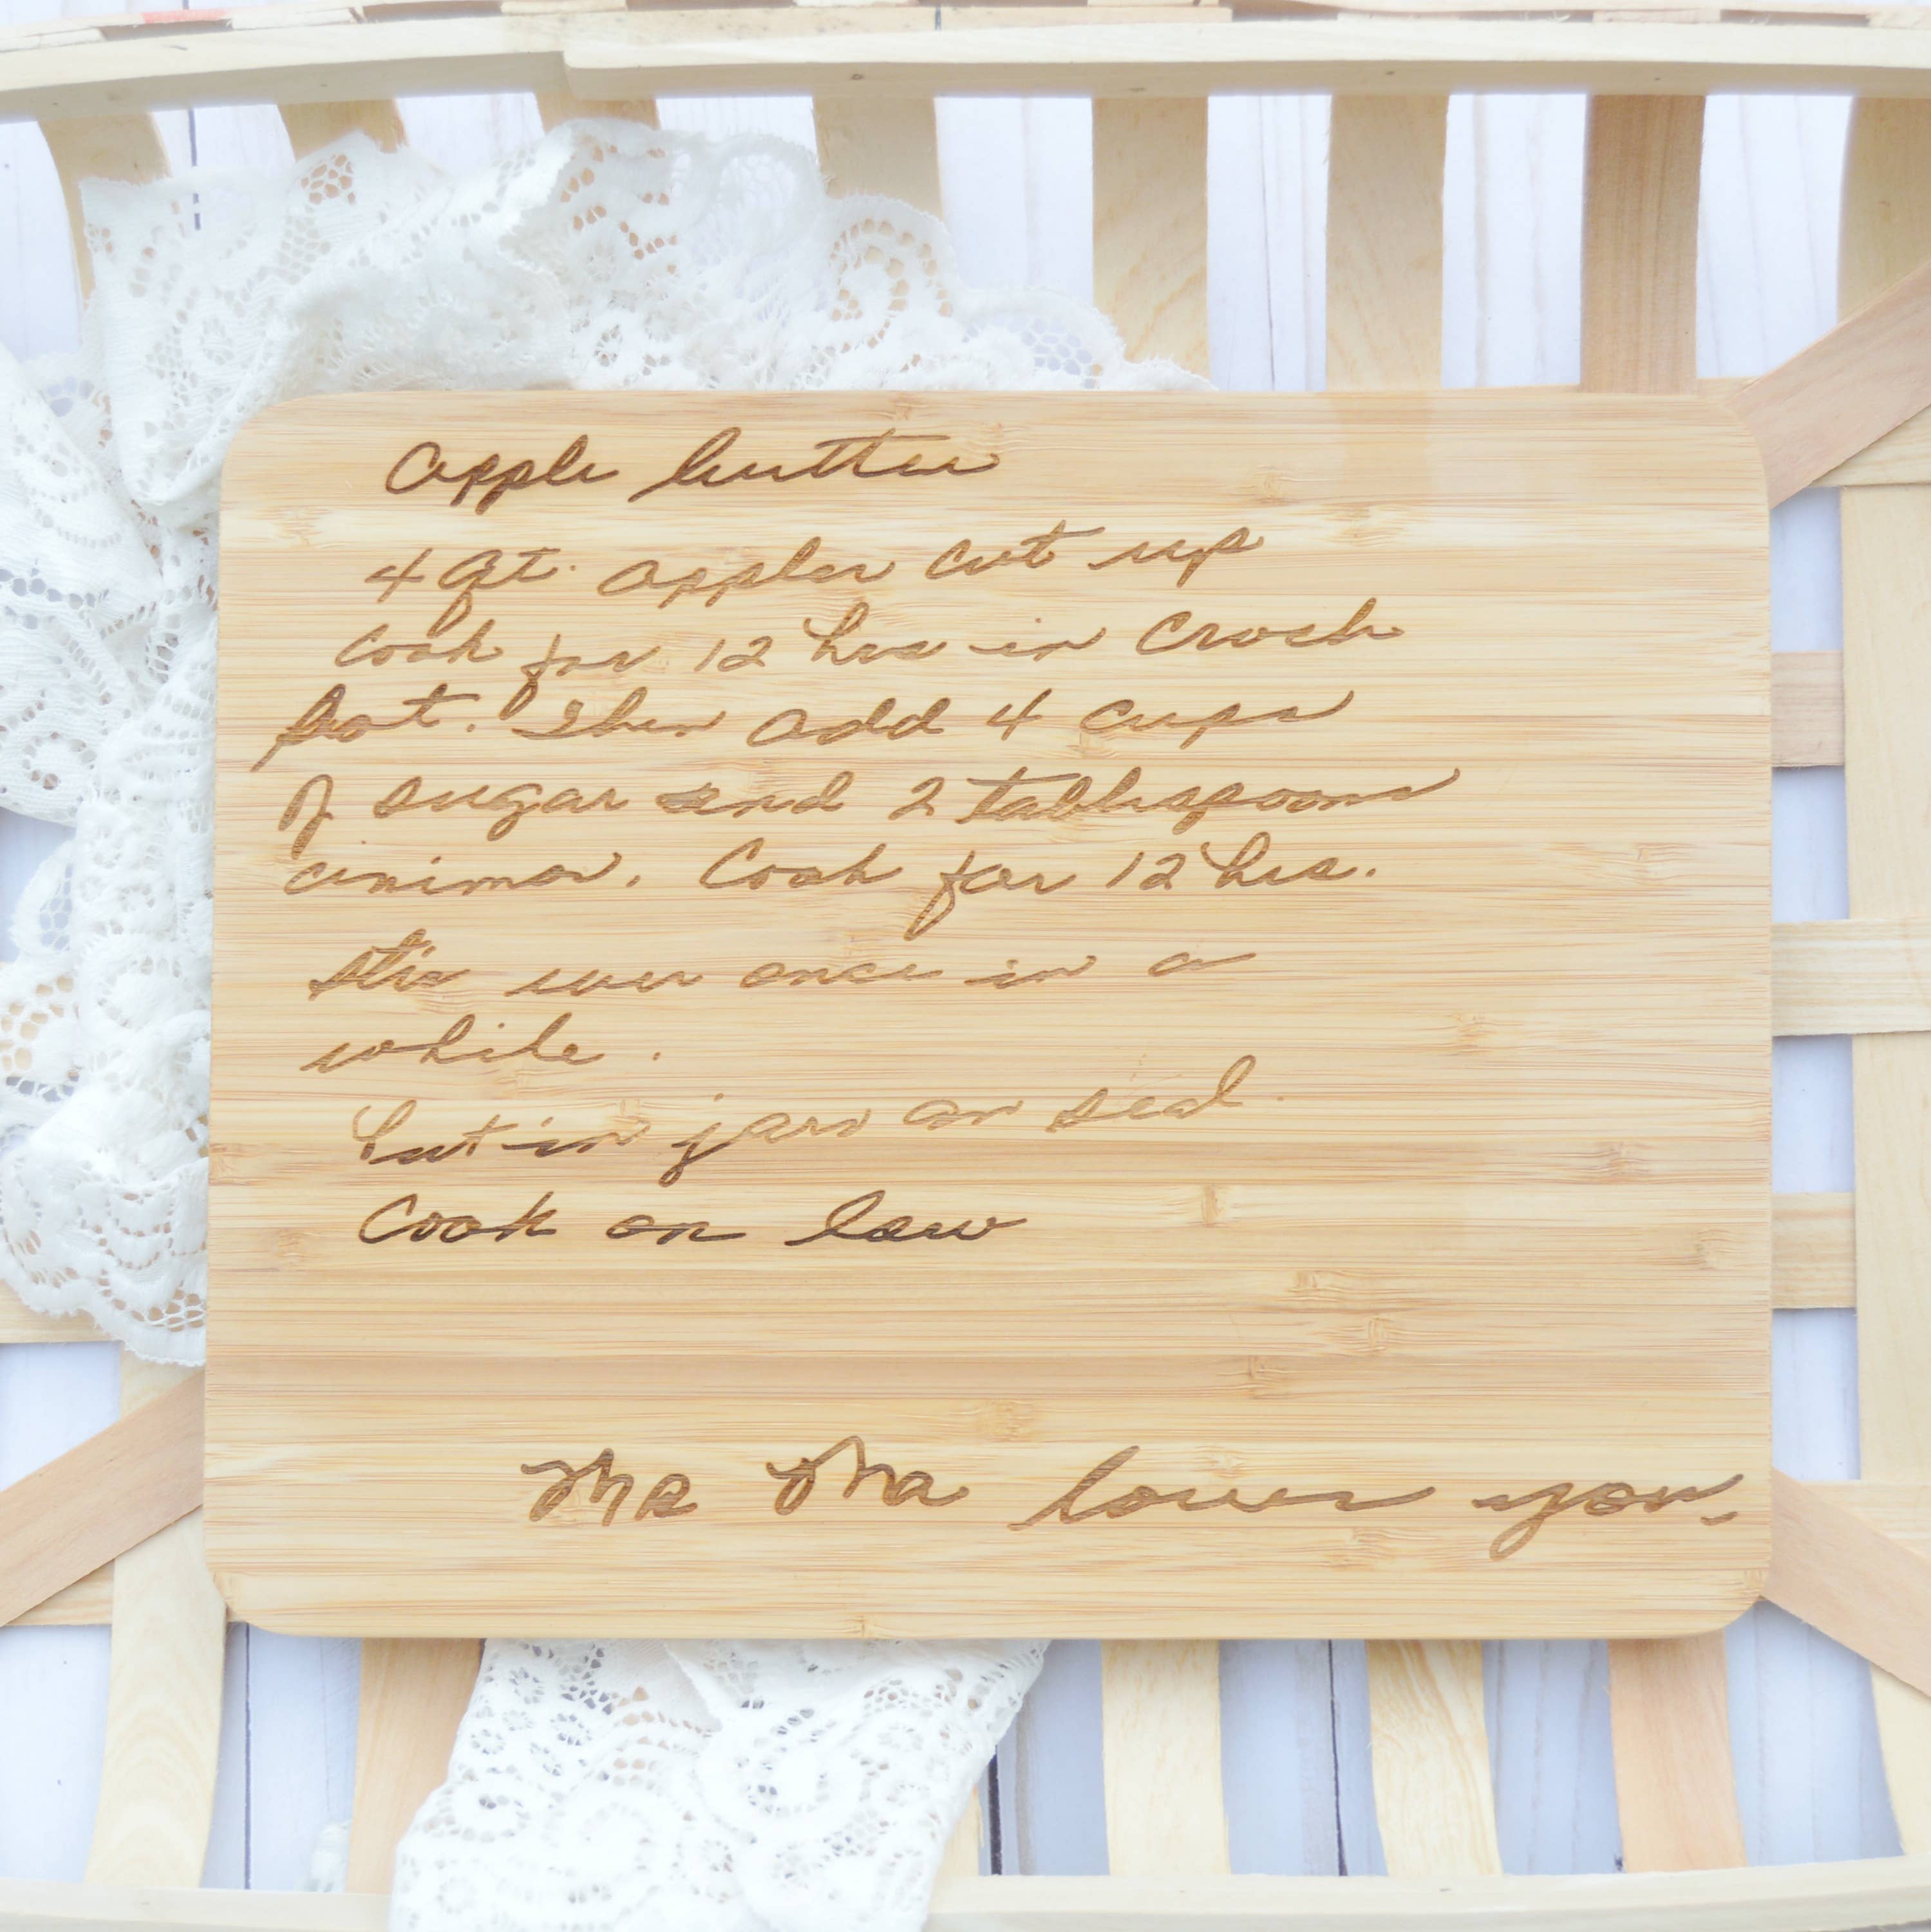 Apple butter
4 Qt. apples cut up
Cook for 12 hrs in Crock
Pot. Then add 4 cups
of sugar and 2 tablespoons
cinimon. Cook for 12 hrs.
Stir ever once in a
while.
Put in jars an seal.
Cook on low
Ma Ma loves you.